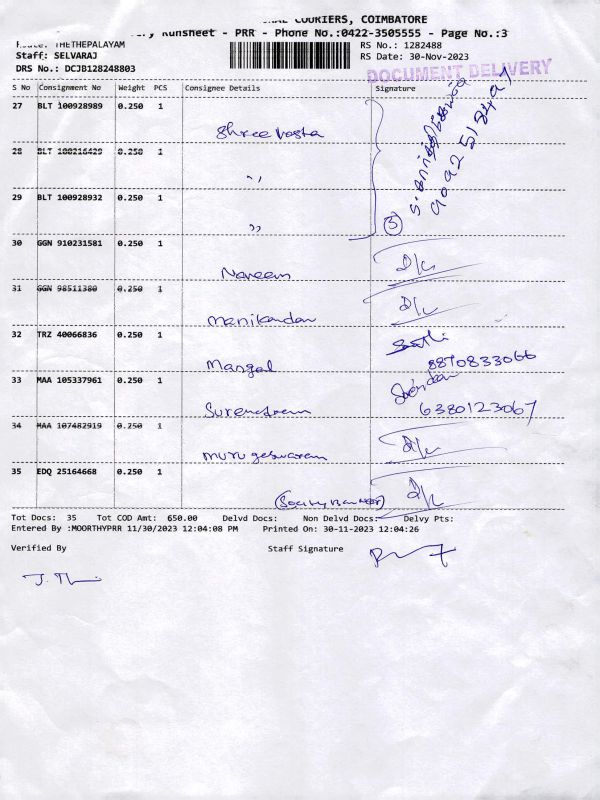 COURIERS, COIMBATORE
Runsheet - PRR - Phone No.:0422-3505555 - Page No.:3
Route: THETHEPALAYAM RS No.: 1282488
Staff: SELVARAJ RS Date: 30-Nov-2023
DRS No.: DCJB128248803 DOCUMENT DELIVERY
S No Consignment No Weight PCS Consignee Details Signature
27 BLT 100928989 0.250 1
28 BLT 100216429 0.250 1
9092518497
29 BLT 100928932 0.250 1
" 3
30 GGN 910231581 0.250 1
Naveen
31 GGN 98511380 0.250 1
Manikandan
32 TRZ 40066836 0.250 1
Mangal 8870833066
33 MAA 105337961 0.250 1
6380123067
34 MAA 107482919 0.250 1
35 EDQ 25164668 0.250 1
Tot Docs: 35 Tot COD Amt: 650.00 Delvd Docs: Non Delvd Docs: Delvy Pts:
Entered By :MOORTHYPRR 11/30/2023 12:04:08 PM Printed On: 30-11-2023 12:04:26
Verified By Staff Signature